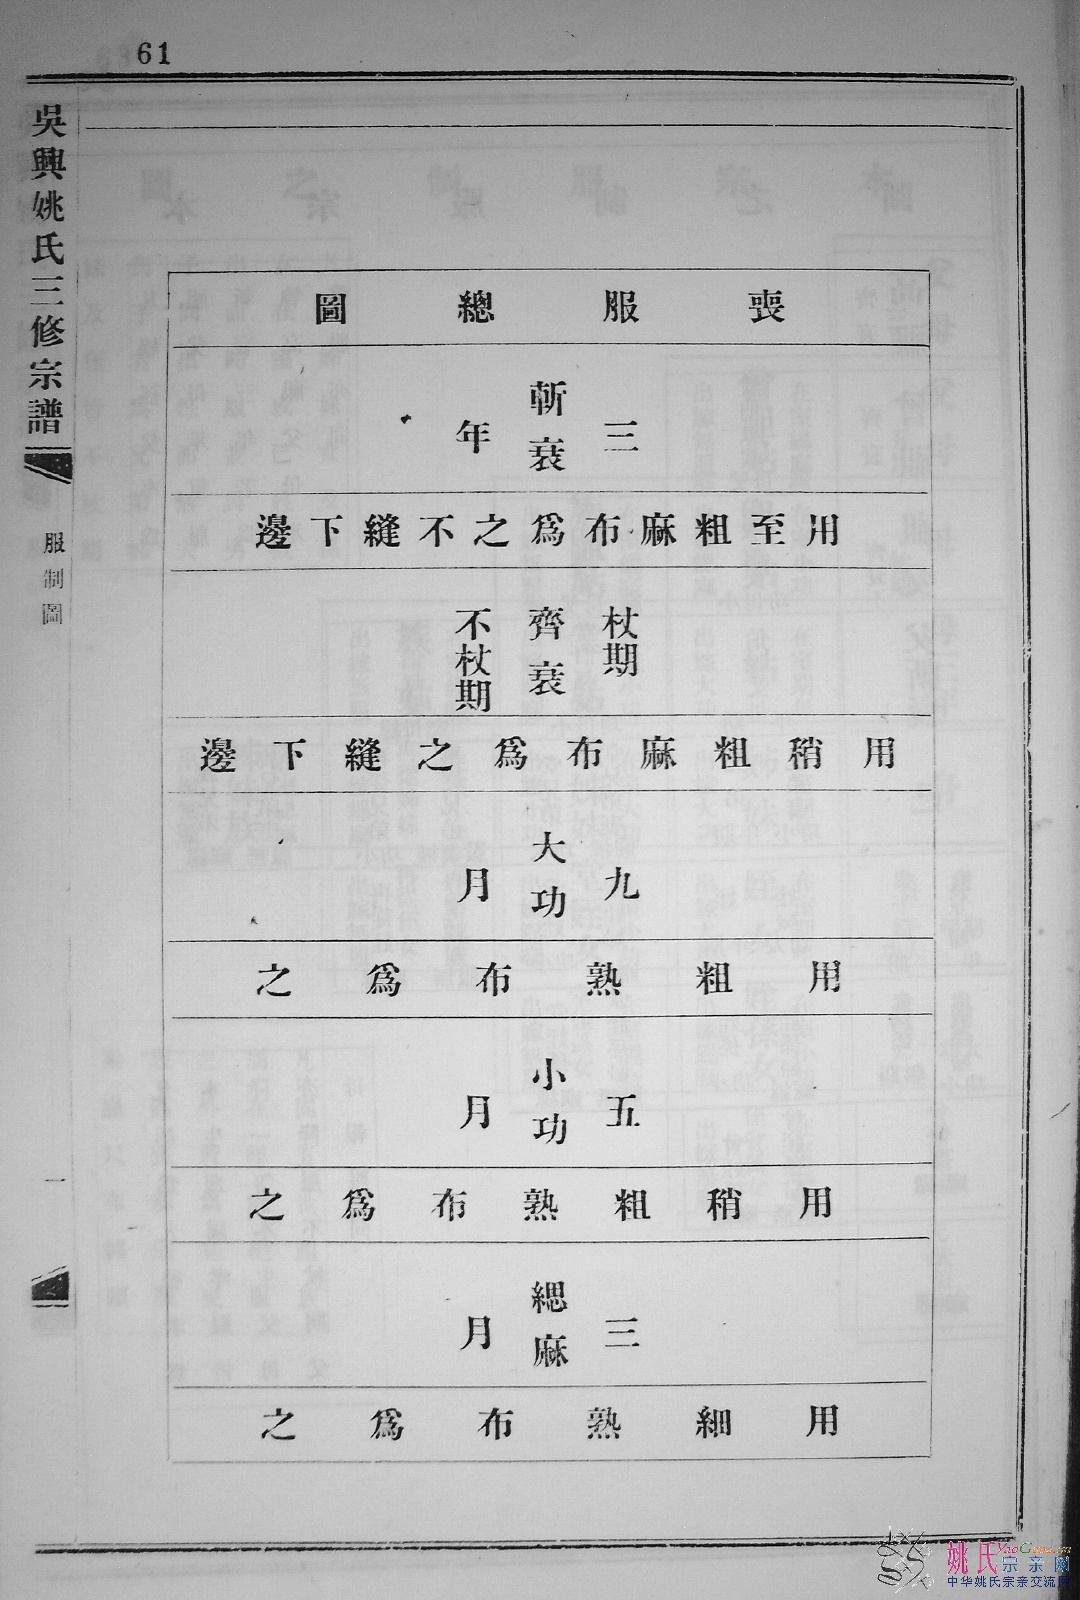 61
吳興姚氏三修宗譜
服制圖
一
喪服總圖
三年
斬衰
用至粗麻布為之不縫下邊
杖期
齊衰
不杖期
用稍粗麻布為之縫下邊
九月
大功
用粗熟布為之
五月
小功
用稍粗熟布為之
三月
緦麻
用細熟布為之
姚氏宗亲网
中华姚氏宗亲交流网